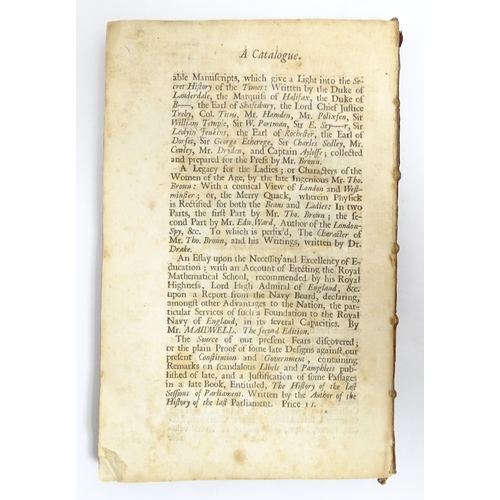 A Catalogue.
able Manuſcripts, which give a Light into the Se-
cret Hiſtory of the Times: Written by the Duke of
Lauderdale, the Marquiſs of Halifax, the Duke of
B——, the Earl of Shaftsbury, the Lord Chief Juſtice
Treby, Col. Titus, Mr. Hamden, Mr. Polixfen, Sir
William Temple, Sir W. Portman, Sir E. Sey—r, Sir
Leolyin Jenkins, the Earl of Rocheſter, the Earl of
Dorſet, Sir George Etherege, Sir Charles Sedley, Mr.
Cowley, Mr. Dryden, and Captain Ayloffe; collected
and prepared for the Preſs by Mr. Brown.
A Legacy for the Ladies; or Characters of the
Women of the Age, by the late Ingenious Mr. Tho.
Brown: With a comical View of London and Weſt-
minſter; or, the Merry Quack, wherein Phyſick
is Rectified for both the Beaus and Ladies: In two
Parts, the firſt Part by Mr. Tho. Brown; the ſe-
cond Part by Mr. Edw. Ward, Author of the London-
Spy, &c. To which is prefix'd, The Character of
Mr. Tho. Brown, and his Writings, written by Dr.
Drake.
An Eſſay upon the Neceſſity and Excellency of E-
ducation; with an Account of Erecting the Royal
Mathematical School, recommended by his Royal
Highneſs, Lord High Admiral of England, &c.
upon a Report from the Navy Board, declaring,
amongſt other Advantages to the Nation, the par-
ticular Services of ſuch a Foundation to the Royal
Navy of England, in its ſeveral Capacities. By
Mr. MAIDWELL. The ſecond Edition.
The Source of our preſent Fears diſcovered;
or the plain Proof of ſome late Deſigns againſt, our
preſent Conſtitution and Government, containing
Remarks on ſcandalous Libels and Pamphlets pub-
liſhed of late, and a Juſtification of ſome Paſſages
in a late Book, Entituled, The Hiſtory of the laſt
Seſſions of Parliament. Written by the Author of the
Hiſtory of the laſt Parliament. Price 1 s.